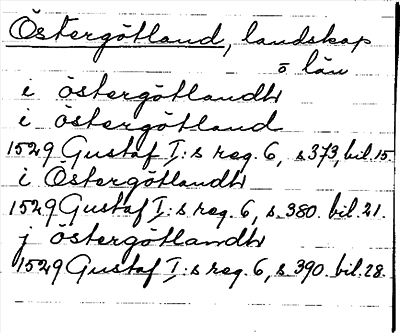 Östergötland, landskap
o län
i östergötlandh
i östergötland
1529 Gustaf I:s reg. 6, s 373, bil. 15.
i Östergötlandh
1529 Gustaf I:s reg. 6, s. 380. bil. 21.
j östergötlandh
1529 Gustaf I:s reg. 6, s. 390. bil. 28.